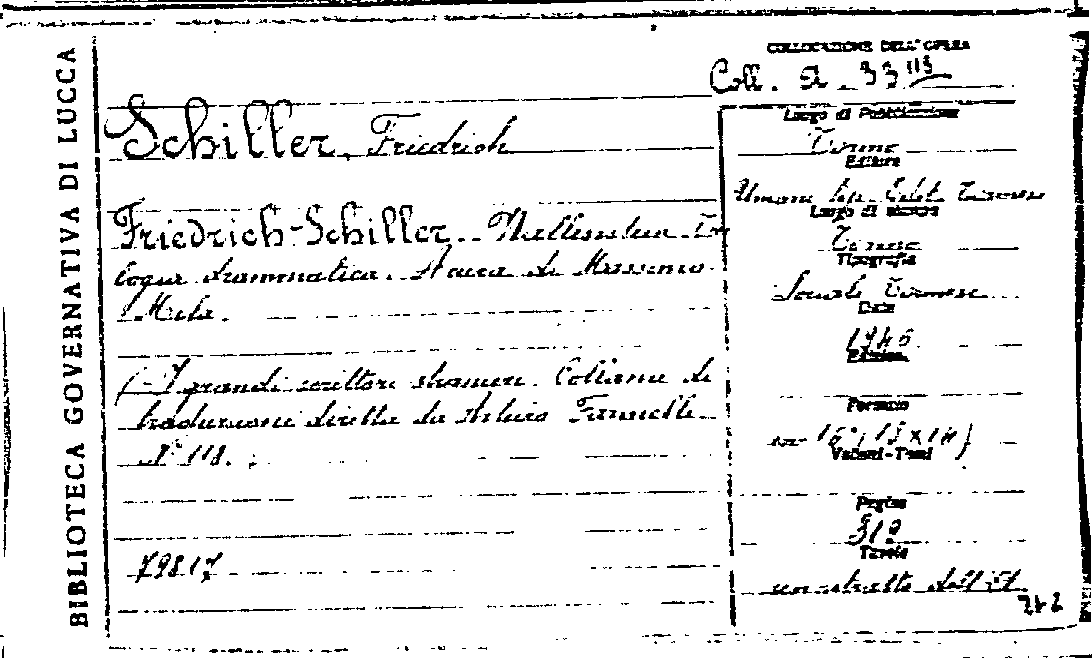 BIBLIOTECA GOVERNATIVA DI LUCCA
COLLOCAZIONE DELL'OPERA
Coll. A. 33 113
Schiller, Friedrich
Friedrich-Schiller. Wallenstein Tri
logia drammatica. A cura di Massimo
Mila.
(I grandi scrittori stranieri. Collana di
traduzioni diretta da Arturo Farinelli
N° 118.
79817
Luogo di Pubblicazione
Torino
Editore
Unione Tip. Edit. Torinese
Luogo di stampa
Torino
Tipografia
Sociale Torinese
Data
Formato
in 16°
Volumi-Tomi
Pagine
Tavole
un ritratto dell'A.